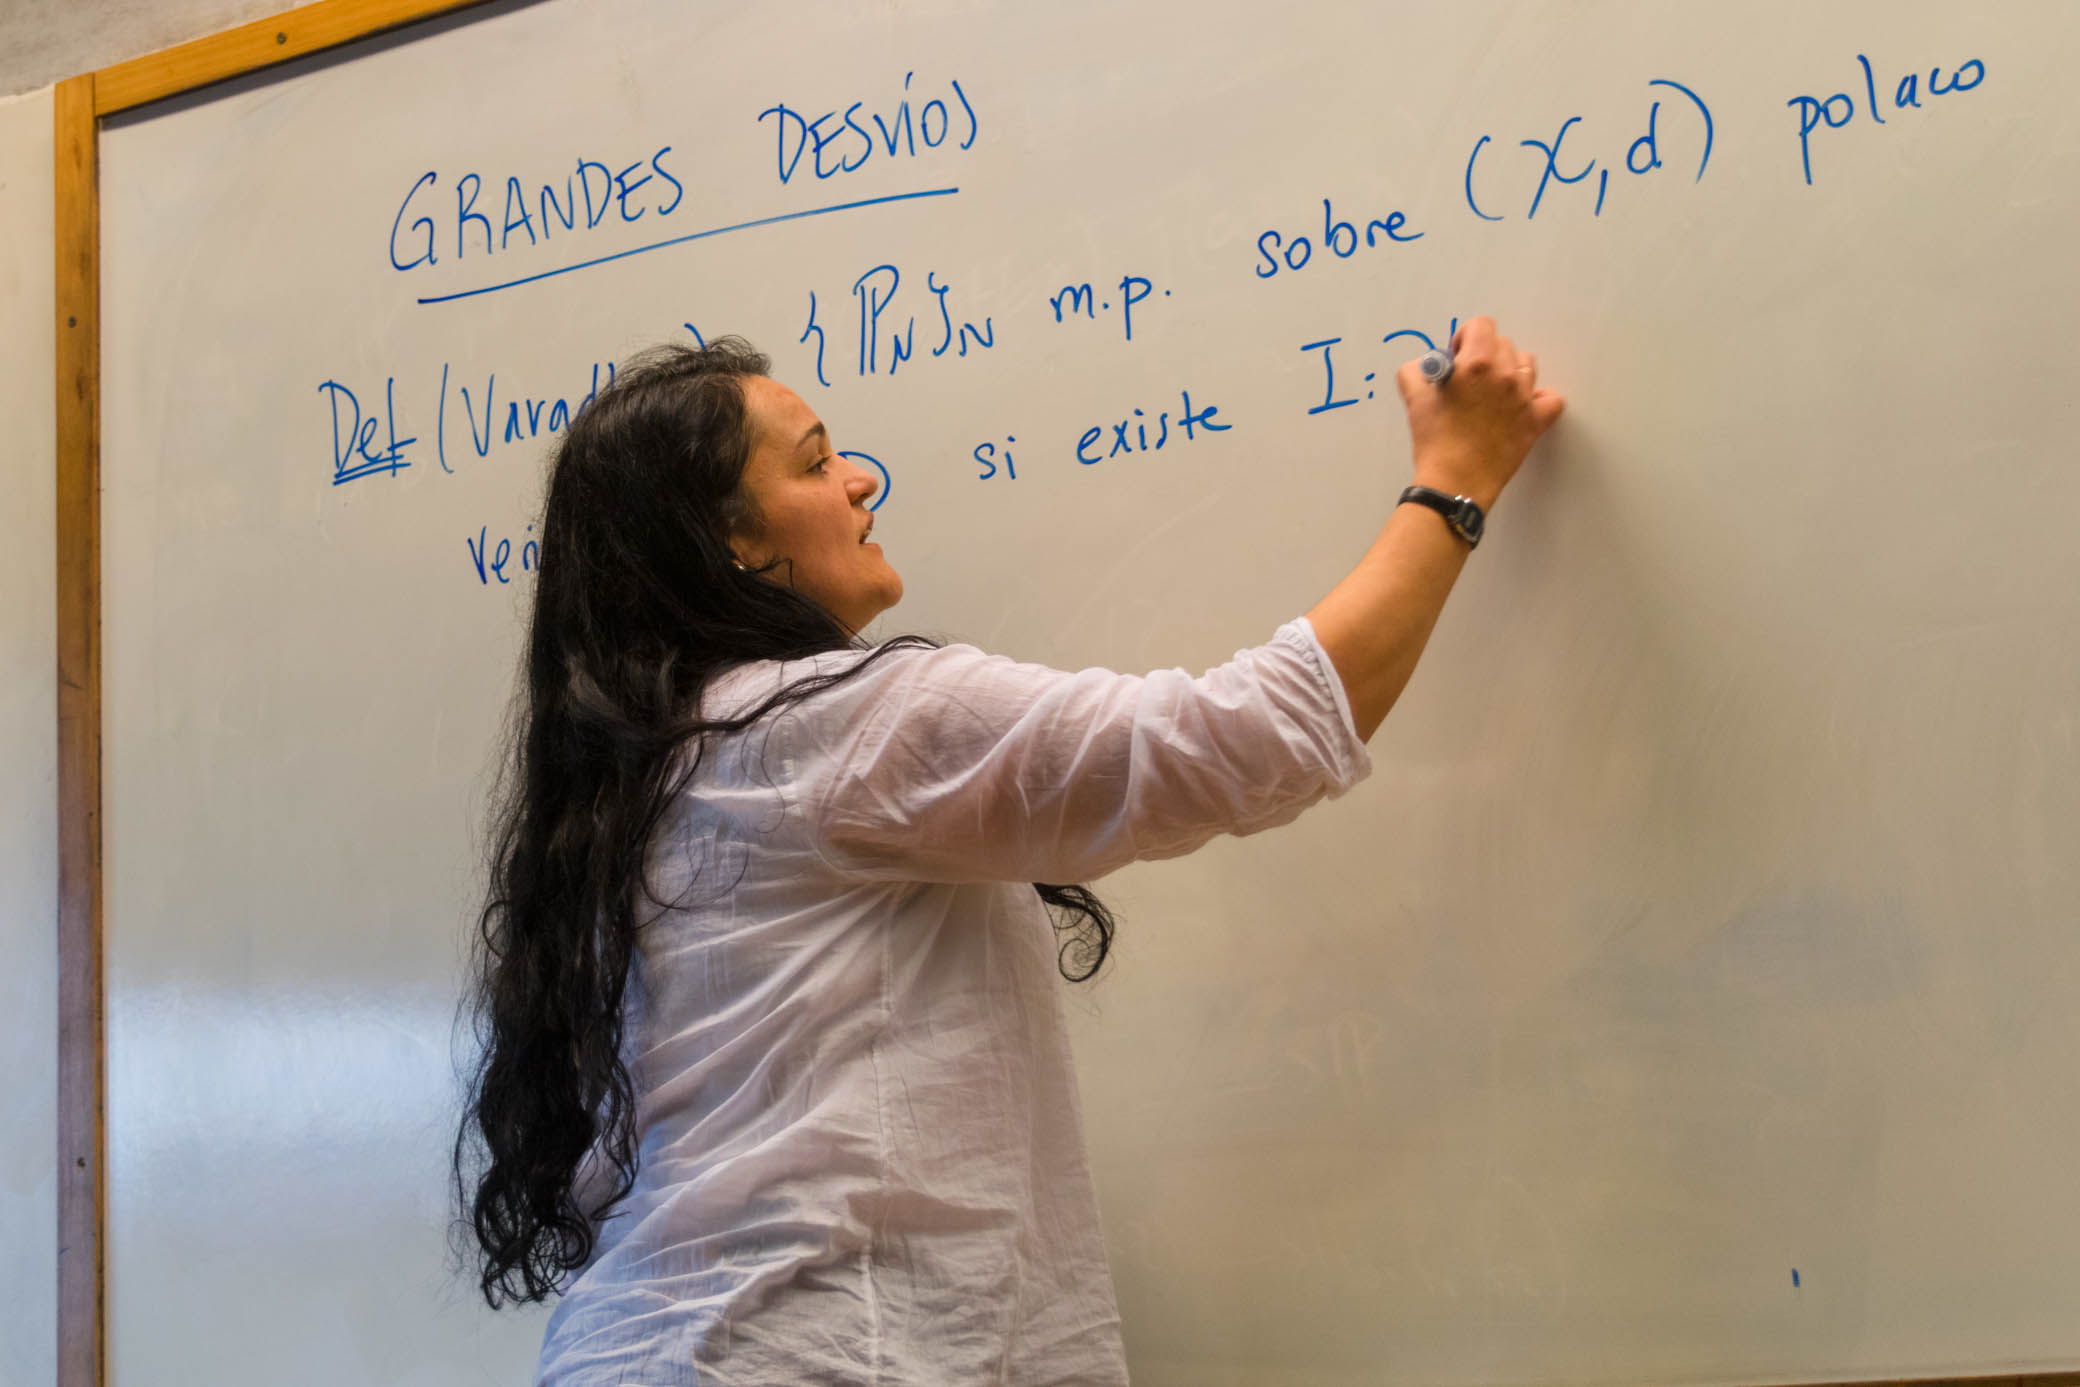 GRANDES DESVÍOS
Def (Varad {ℙ_N}_N m.p. sobre (𝒳, d) polaco
si existe I: